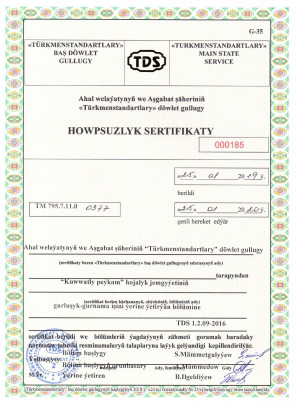 G-35
«TÜRKMENSTANDARTLARY»
BAŞ DÖWLET
GULLUGY
TDS
«TURKMENSTANDARTLARY»
MAIN STATE
SERVICE
Ahal welaýatynyň we Aşgabat şäheriniň
«Türkmenstandartlary» döwlet gullugy
HOWPSUZLYK SERTIFIKATY
000185
«25» 01 2019 ý.
berildi
TM 795.7.11.0 0377
«25» 01 2020 ý.
çenli hereket edýär
Ahal welaýatynyň we Aşgabat şäheriniň "Türkmenstandartlary" döwlet gullugy
(sertifikaty beren «Türkmenstandartlary» baş döwlet gullugynyň edarasynyň ady)
tarapyndan
"Kuwwatly peýkam" hojalyk jemgyýetiniň
gurluşyk-gurnama işini ýerine ýetirýän bölümine
TDS 1.2.09-2016
sertifikat berildi we bölümleriň ýagdaýynyň zähmeti goramak baradaky
kadalaşdyryjy resminamalaryň talaplaryna laýyk gelýändigi kepillendirilýär.
Bölüm başlygy
S.Mämmetgulyýew
A.Mämmedow
Ýerine ýetiren
B.Ilgeldiýew